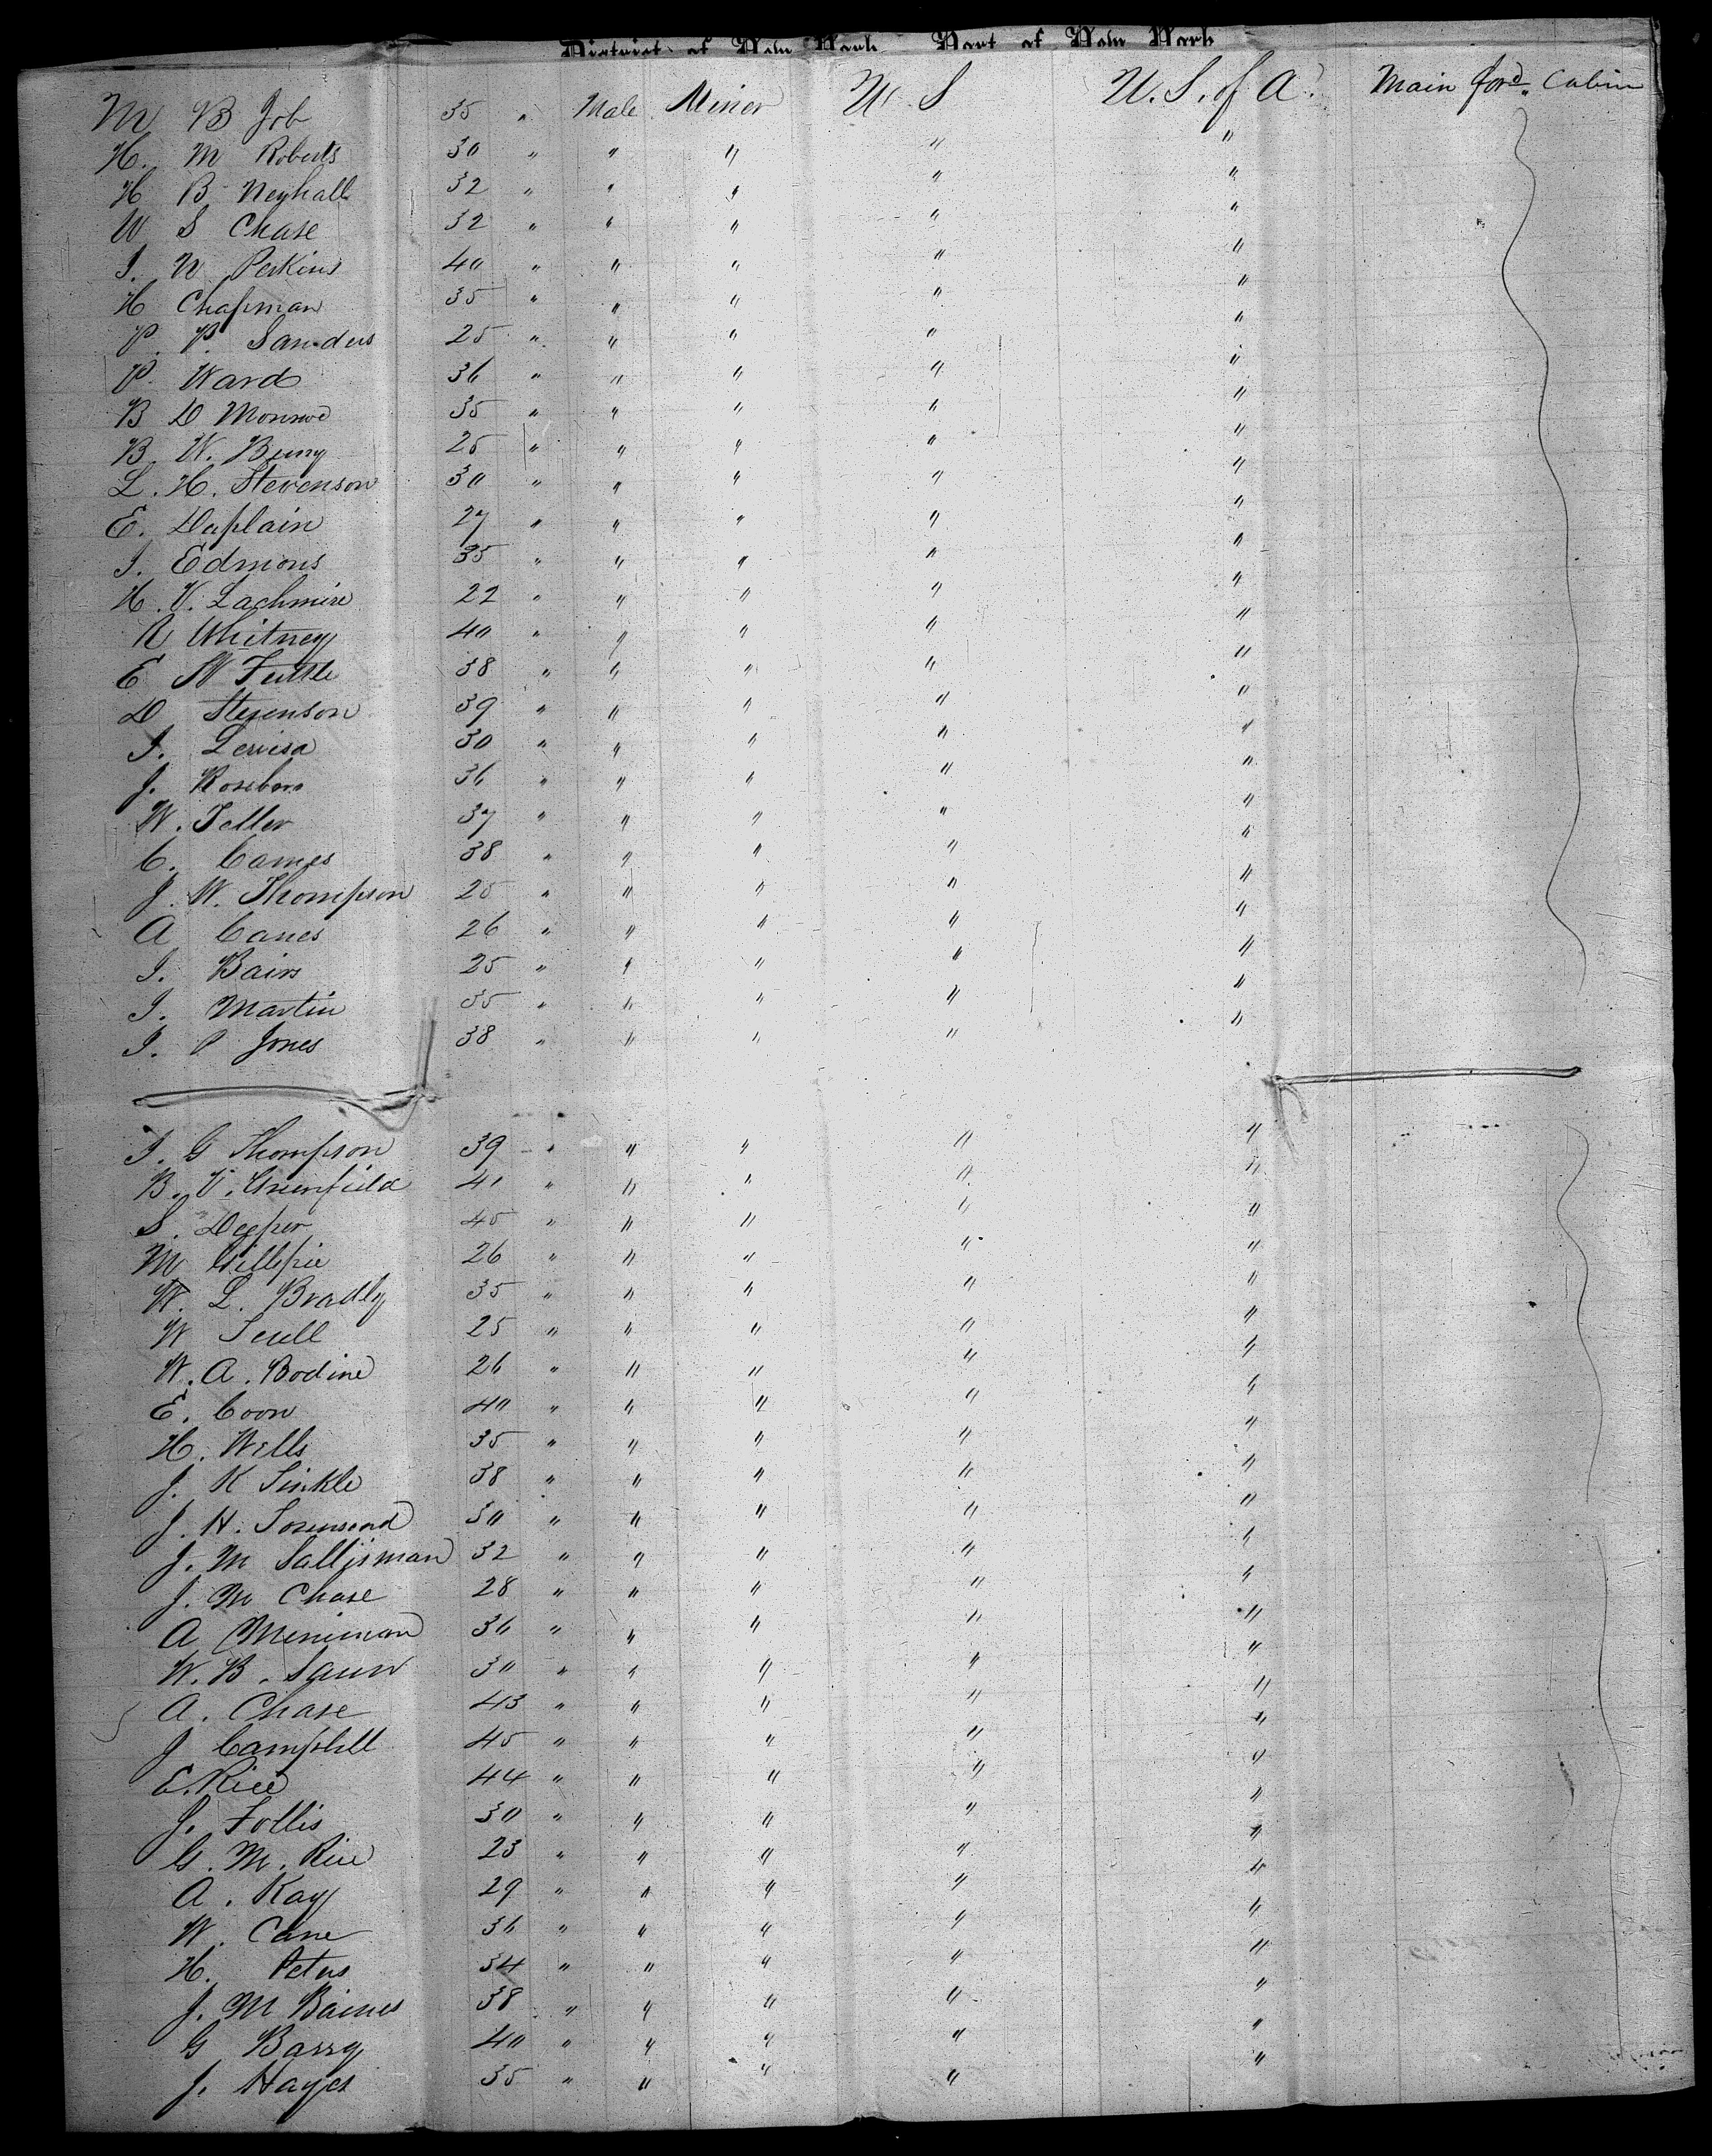 District of New York Port of New York
M B Job 35 " Male Miner U S U. S. of A. Main for'd Cabin
H. M Roberts 30 " " " " "
H B Neyhall 32 " " " " "
W S Chase 32 " " " " "
I. N Perkins 40 " " " " "
H Chapman 35 " " " " "
P. P. Sanders 25 " " " " "
P. Ward 36 " " " " "
B D Monroe 35 " " " " "
B. W. 25 " " " " "
L. H. Stevenson 30 " " " " "
E. Daplain 27 " " " " "
I. Edmons 35 " " " " "
H. V. Lachmire 22 " " " " "
R Whitney 40 " " " " "
E W Tuttle 38 " " " " "
D Stevenson 39 " " " " "
I. 30 " " " " "
J. Rosebom 36 " " " " "
W. Teller 37 " " " " "
C. Carnes 38 " " " " "
J. W. Thompson 25 " " " " "
A Canes 26 " " " " "
I. Bairs 25 " " " " "
I. Martin 35 " " " " "
I. P Jones 38 " " " " "
I. G Thompson 39 " " " " "
B. V. Greenfield 41 " " " " "
S. Depper 45 " " " " "
M Gillepie 26 " " " " "
W. L. Bradly 35 " " " " "
W Scull 25 " " " " "
W. A. Bodine 26 " " " " "
E. Coon 40 " " " " "
H. Wells 35 " " " " "
J. K Sinkle 38 " " " " "
J. H. 30 " " " " "
J. M Sallisman 32 " " " " "
J. M Chase 28 " " " " "
A Merriman 36 " " " " "
W. B. 30 " " " " "
A. Chase 43 " " " " "
J Campbell 45 " " " " "
E. Rice 44 " " " " "
J. Follis 30 " " " " "
G. M. Rice 23 " " " " "
A. Kay 29 " " " " "
W. Cane 36 " " " " "
H. Peters 34 " " " " "
J. M Baines 38 " " " " "
G Barry 40 " " " " "
J. Hayes 35 " " " " "